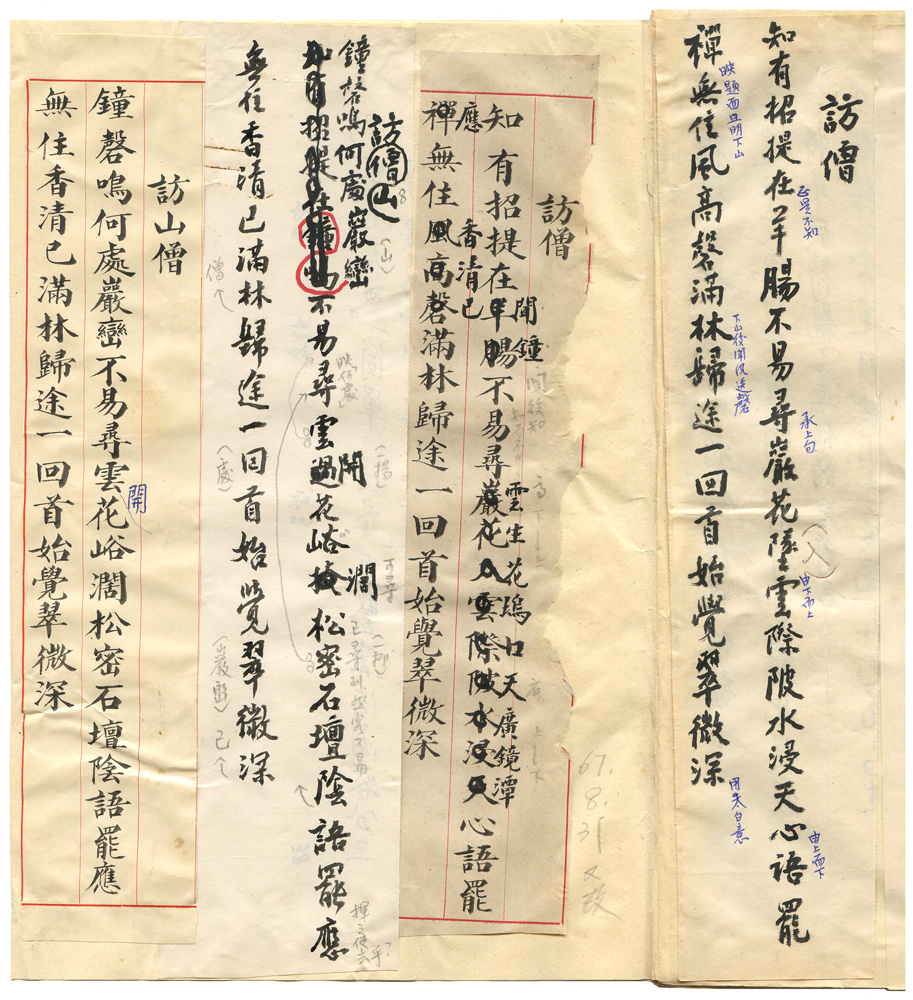 訪僧
知有招提在羊腸不易尋巖花墜雲際陂水浸天心語罷
正是不知
承上句
入
由下而上
由上而下
禪無住風高磬滿林歸途一回首始覺翠微深
映題而且明下山
用太白意
67.8.31又改
訪僧
聞鐘
雲生花塢口天廣鏡潭
知有招提在羊腸不易尋巖花入雲際陂水浸天心語罷
應
香清已
禪無住風高磬滿林歸途一回首始覺翠微深
訪僧山
鐘磬鳴何處巖巒
開
濶
知有招提在鐘鳴不易尋雲過花峪松密石壇陰語罷應
無住香清已滿林歸途一回首始覺翠微深
訪山僧
鐘磬鳴何處巖巒不易尋雲花峪濶松密石壇陰語罷應
開
無住香清已滿林歸途一回首始覺翠微深